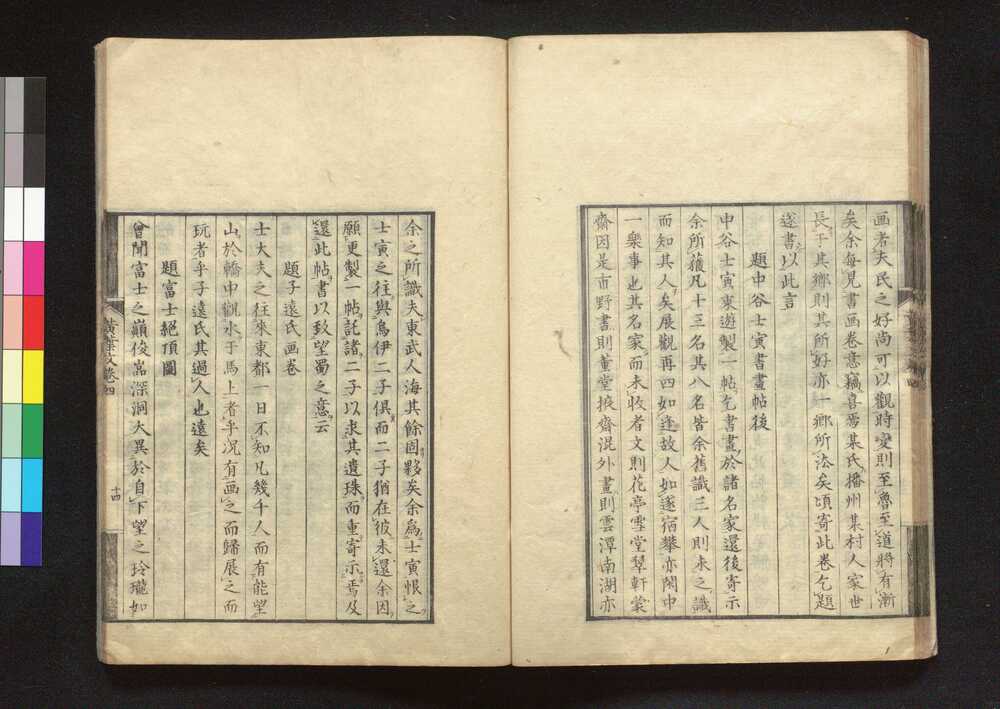 画者夫民之好尚可以觀時變則至魯至道將有漸
矣余每見書画卷意竊喜焉某氏播州某村人家世
長于其鄉則其所好亦一鄉所法矣頃寄此卷乞題
遂書以此言
題中谷士寅書畫帖後
中谷士寅東遊製一帖乞書畫於諸名家還後寄示
余所獲凡十三名其八名皆余舊識三人則未之識
而知其人矣展觀再四如逢故人如遂宿攀亦閑中
一樂事也其名家而未收者文則花亭雪堂翠軒裳
齋因是市野書則董堂掖齋混外畫則雲潭南湖亦
余之所識夫東武人海其餘固夥矣余為士寅恨之
士寅之往與鳥伊二子俱而二子猶在彼未還余因
願更製一帖託諸二子以求其遺珠而重寄示焉及
還此帖書以致望蜀之意云
題子遠氏画卷
士大夫之往來東都一日不知凡幾千人而有能望
山於轎中觀水于馬上者乎況有画之而歸展之而
玩者乎子遠氏其過人也遠矣
題富士絕頂圖
曾聞富士之巔俊嵓深洞大異於自下望之玲瓏如
黃葉文卷四
十四